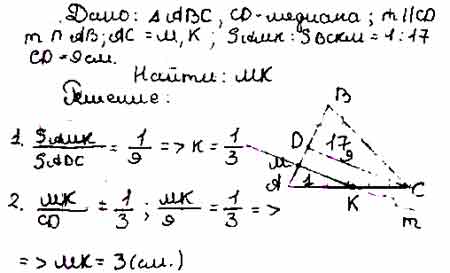 Дано: △ABC, CD-медиана; m∥CD
m ∩ AB; AC = M, K; SAMK : SBCKM = 1:17
CD = 9см.
Найти: MK
Решение:
1. SAMK/SADC = 1/9 => K = 1/3
2. MK/CD = 1/3; MK/9 = 1/3 =>
=> MK = 3(см.)
B
D
17
9
M
A
1
K
C
m